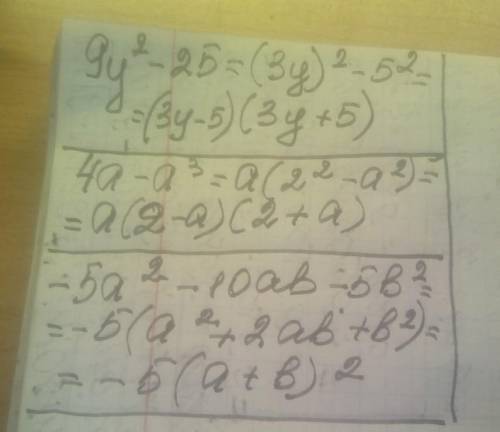 9y² - 25 = (3y)² - 5² =
= (3y-5)(3y+5)
4a - a³ = a(2² - a²) =
= a(2-a)(2+a)
-5a² - 10ab - 5b² =
= -5(a² + 2ab + b²) =
= -5(a+b)²